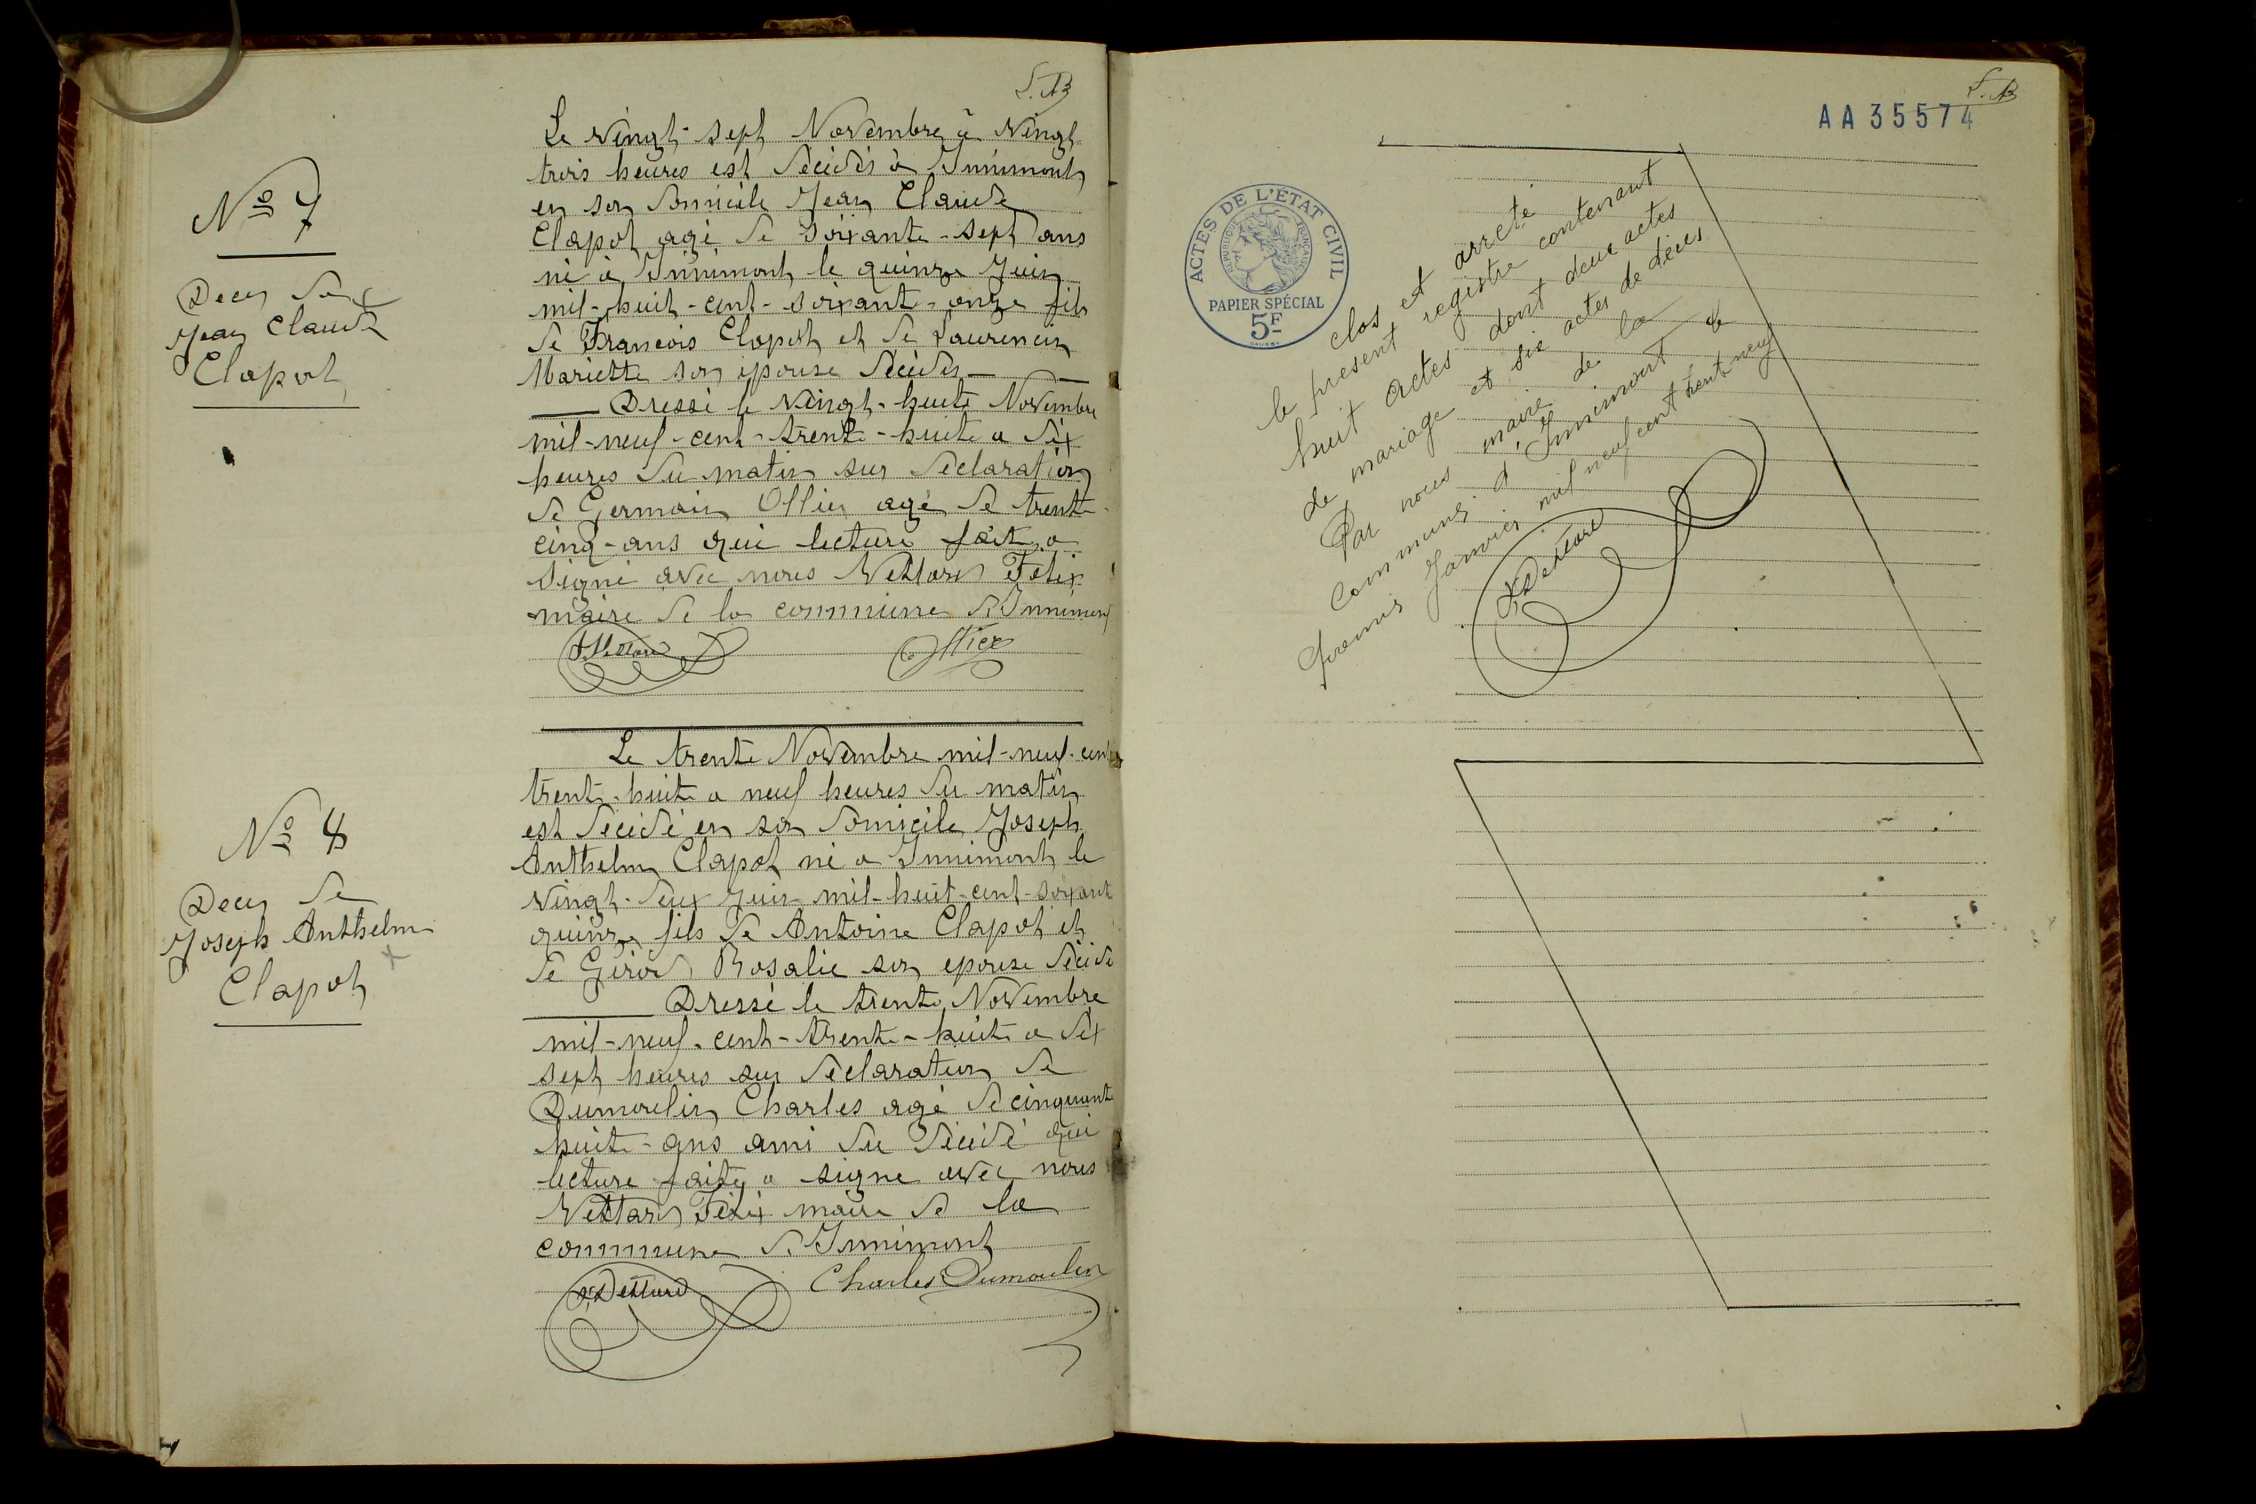 S. B
Nº 7
Deces de
Jean Claude
Clapot
Le vingt-sept Novembre à vingt
trois heures est décédés à Innimont
en son domicile Jean Claude
Clapot agé de soixante-sept ans
né à Innimont le quinze Juin
mil-huit-cent-soixante-onze fils
de Francois Clapot et de Laurencin
Mariette son épouse décédés
Dressé le vingt-huite Novembre
mil-neuf-cent-trente-huite a dix
heures du matin sur déclaration
de Germain Ollier agé de trente
cinq-ans qui lecture fait a
signé avec nous Vettard Felix
maire de la commune d'Innimont
F. Vettard Ollier
Nº 8
Deces de
Joseph Anthelm
Clapot
Le trente Novembre mil-neuf-cent
trente-huite a neuf heures du matin
est décédé en son domicile Joseph
Anthelm Clapot né a Innimont le
vingt-deux Juin mil-huit-cent-soixant
quinze fils de Antoine Clapot et
de Girod Rosalie son epouse décédé
Dressé le trente Novembre
mil-neuf-cent-trente-huite a dix
sept heures sur déclaration de
Dumoulin Charles agé de cinquant
huite-ans ami du décédé qui
lecture faite a signe avec nous
Vettard Félix maire de la
commune d'Innimont
F. Vettard Charles Dumoulin
S. B
AA 35574
ACTES DE L'ÉTAT CIVIL
RÉPUBLIQUE FRANÇAISE
PAPIER SPÉCIAL
5F
clos et arreté
le present registre contenant
huit actes dont deux actes
de mariage et six actes de décès
Par nous maire de la
Commune d'Innimont le
premier Janvier mil neuf cent trent neuf
F. Vettard